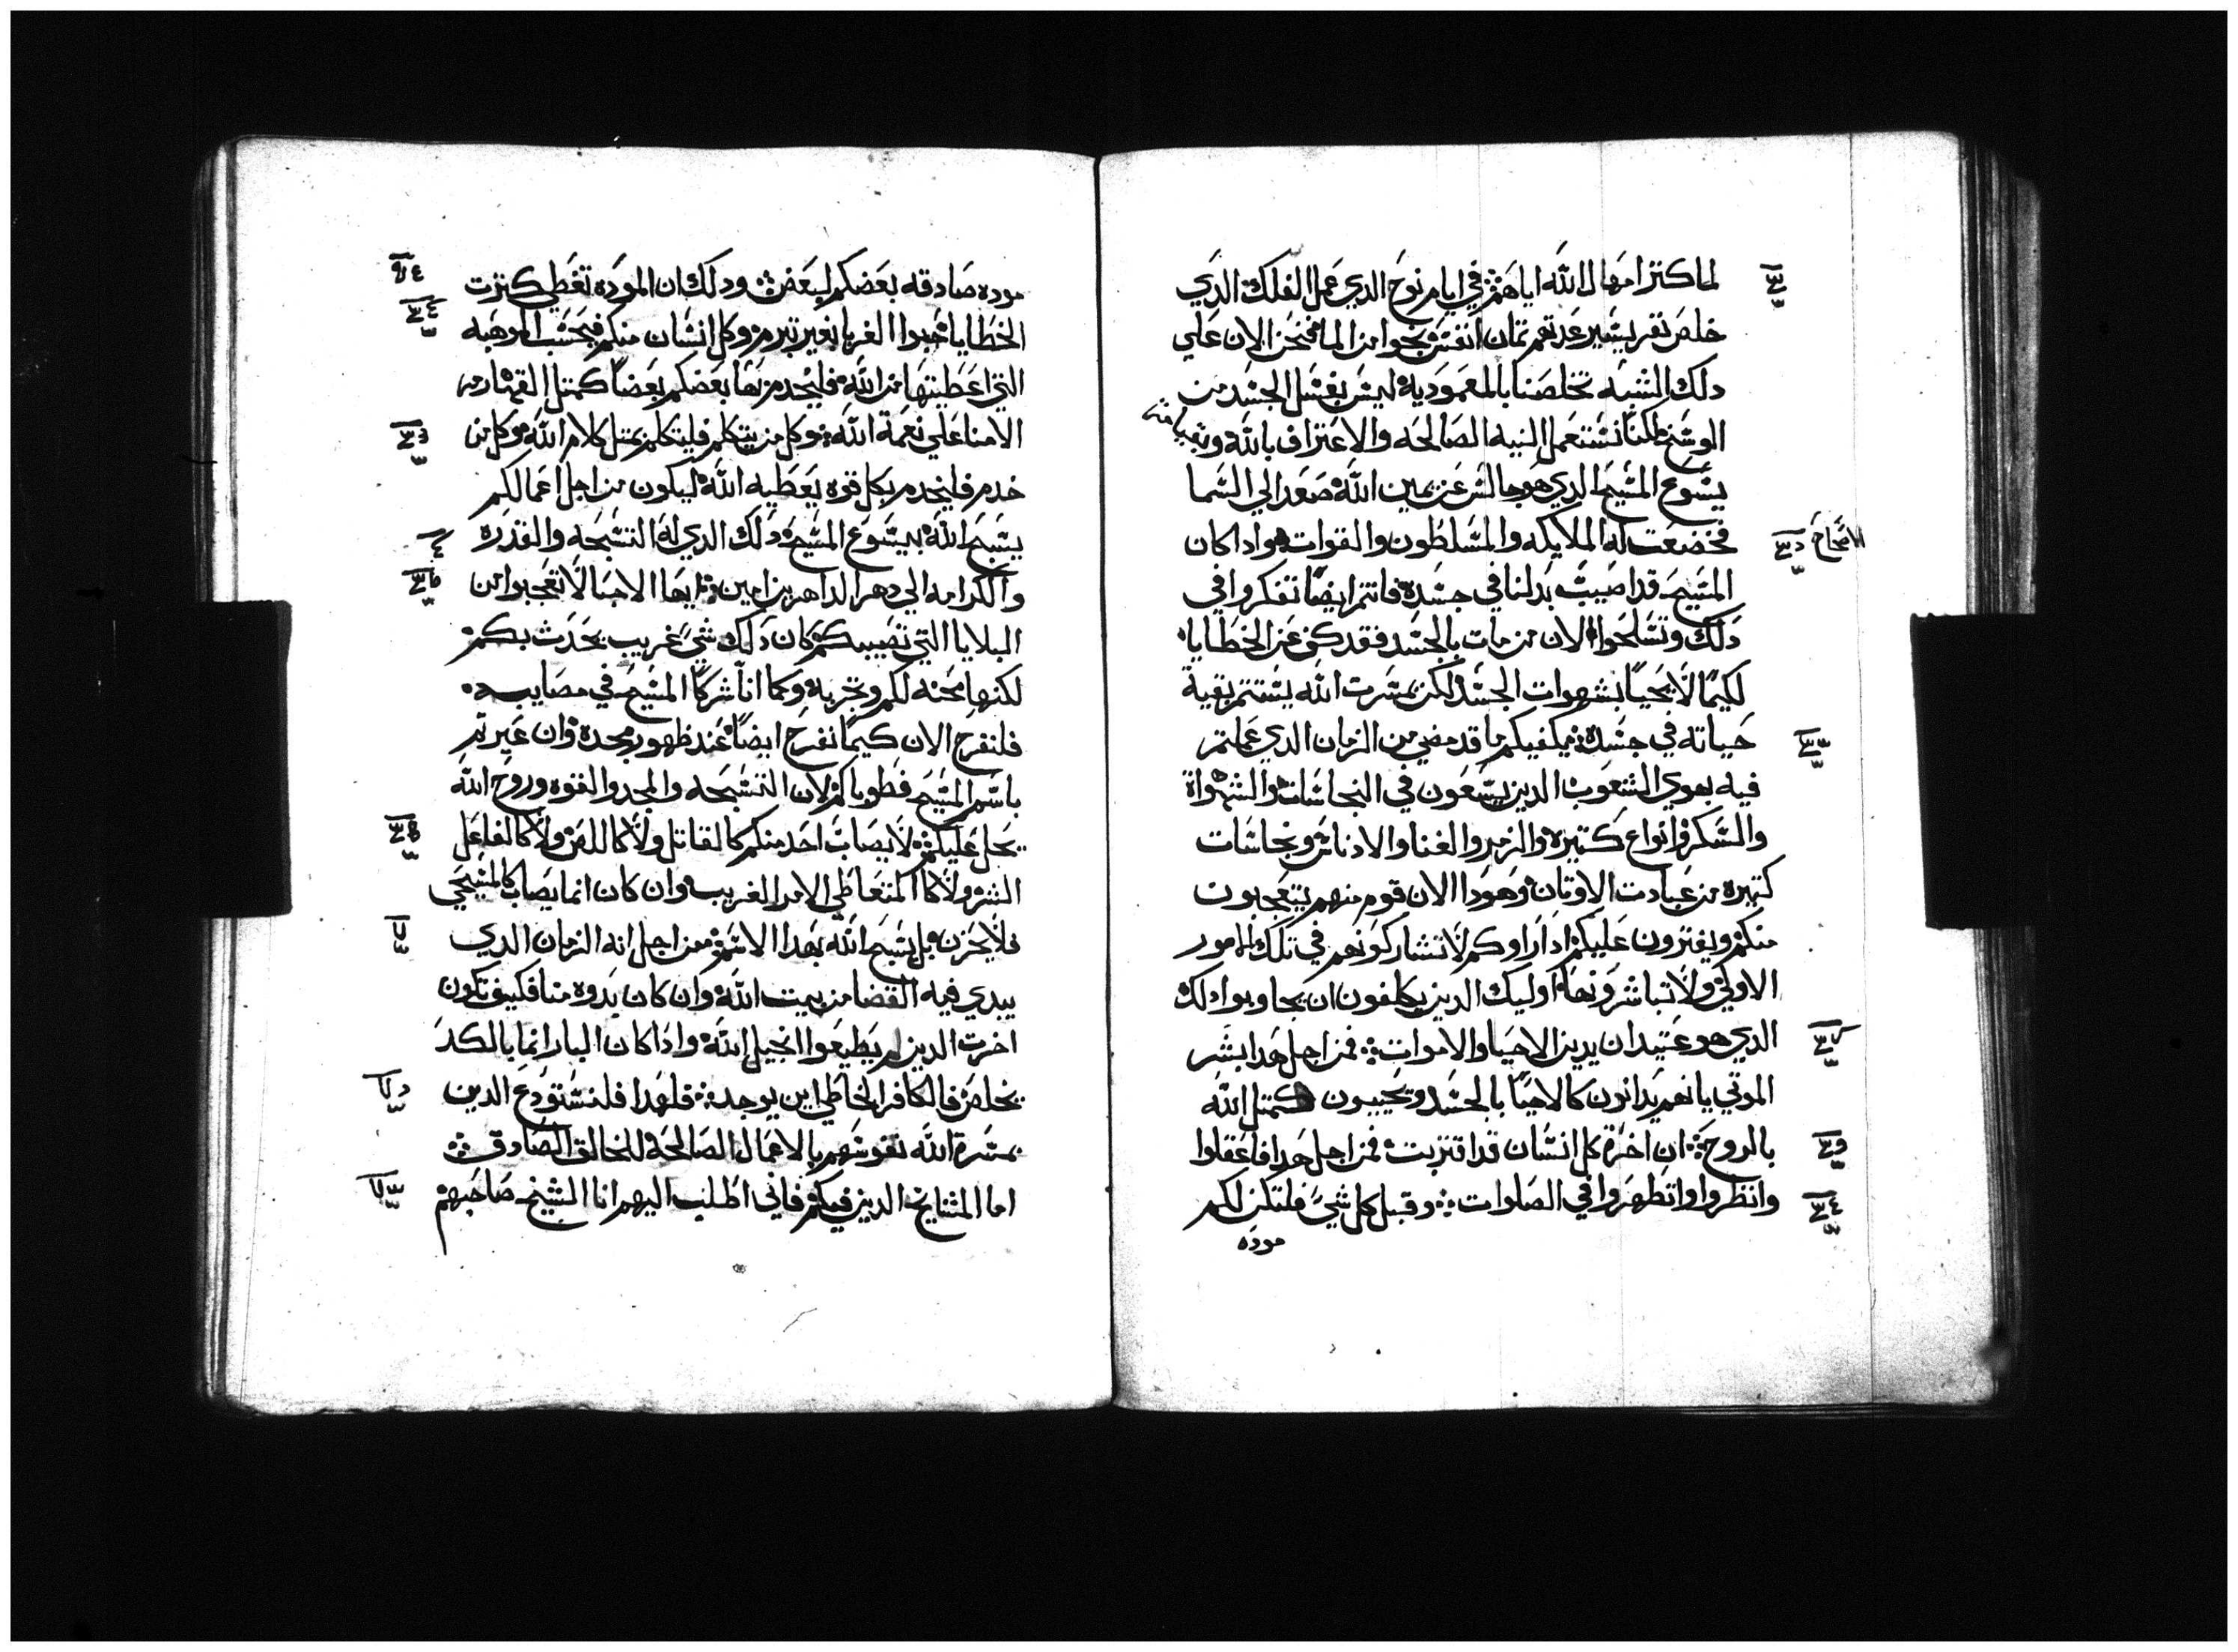 لما كتر امهال الله اياهم في ايام نوح الدي عمل الفلك الدي
خلص نفر يسير عدتهم تمان انفس نجوا من الما فنحن الان علي
دلك الشبه تخلصنا بالمعمودية ليس بغسل الجسد من
الوسخ لكننا نستعمل النيه الصالحه والاعتراف بالله وبقيامة
يسوع المسيح الدي هو جالس عن يمين الله صعد الي السما
فخضعت له الملايكه والمسلطون والقوات واداكان
الاصحاح
المسيح قد اصيب بدلنا في جسده فانتم ايضا تفكروا في
دلك وتسلحوا الان من مات بالجسد فقد كف عن الخطايا
لكيما لا يحيا بشهوات الجسد لكن بمسرت الله يستتم بقية
حياته في جسده يكفيكم ما قد مضي من الزمان الدي عملتم
فيه بهوي الشعوب الدين يسعون في النجاسات والشهواة
والسكر وانواع كتيره والزمر والغنا والادناس ونجاسات
كتيره من عبادت الاوتان وهودا الان قوم منهم يتعجبون
منكم ويفترون عليكم ادا راوكم لا تشاركونهم في تلك الامور
الاولي ولا تباشرونها اوليك الدين يكلفون ان يجاوبوا دلك
الدي هو عتيد ان يدين الاحيا والاموات فمن اجل هدا بشر
الموتي بانهم يدانون كالاحيا بالجسد وتحييون كمتل الله
بالروح ان اخرة كل انسان قد اقتربت فمن اجل هدا فاعقلوا
وانظروا واتطهروا في الصلوات وقبل كل شي فلتكن لكم
موده
موده صادقه بعضكم لبعض ودلك ان الموده تغطي كترت
الخطايا احبوا الغربا بغير تبرم وكل انسان منكم فبحسب الموهبه
التي اعطيتها من الله فليخدم بها بعضكم بعضا كمتل القهارمه
الامنا علي نعمة الله وكل من يتكلم فليتكلم بمتل كلام الله وكل من
خدم فليخدم بكل قوه يعطيه الله ليكون من اجل اعمالكم
يسبح الله بيسوع المسيح دلك الدي له التسبحه والقدره
والكرامه الي دهر الداهرين امين ايها الاحبا لا تعجبوا من
البلايا التي تصيبكم كان دلك شي غريب يحدث بكم
لكنها محنه لكم وتجربه وكما انا شركا المسيح في مصايبه
فلنفرح الان كيما نفرح ايضا عند ظهور مجده وان عيرتم
باسم المسيح فطوباكم لان التسبحه والمجد والقوه وروح الله
يحل عليكم لا يصاب احد منكم كالقاتل ولا كاللص ولا كالفاعل
الشر ولا كالمتعاطي الامر الغريب وان كان انما يصاب كالمسيحي
فلا يحزن بل يسبح الله بهدا الاسم من اجل انه الزمان الدي
يبدي فيه القضا من بيت الله وان كان بدوه منا فكيف تكون
اخرت الدين لم يطيعوا انجيل الله وادا كان البار انما بالكد
يخلص فالكافر الخاطي اين يوجد فلهدا فلنستودع الدين
بمسرة الله نفوسهم بالاعمال الصالحة للخالق الصادق
اما المشايخ الدين فيكم فاني اطلب اليهم انا الشيخ صاحبهم